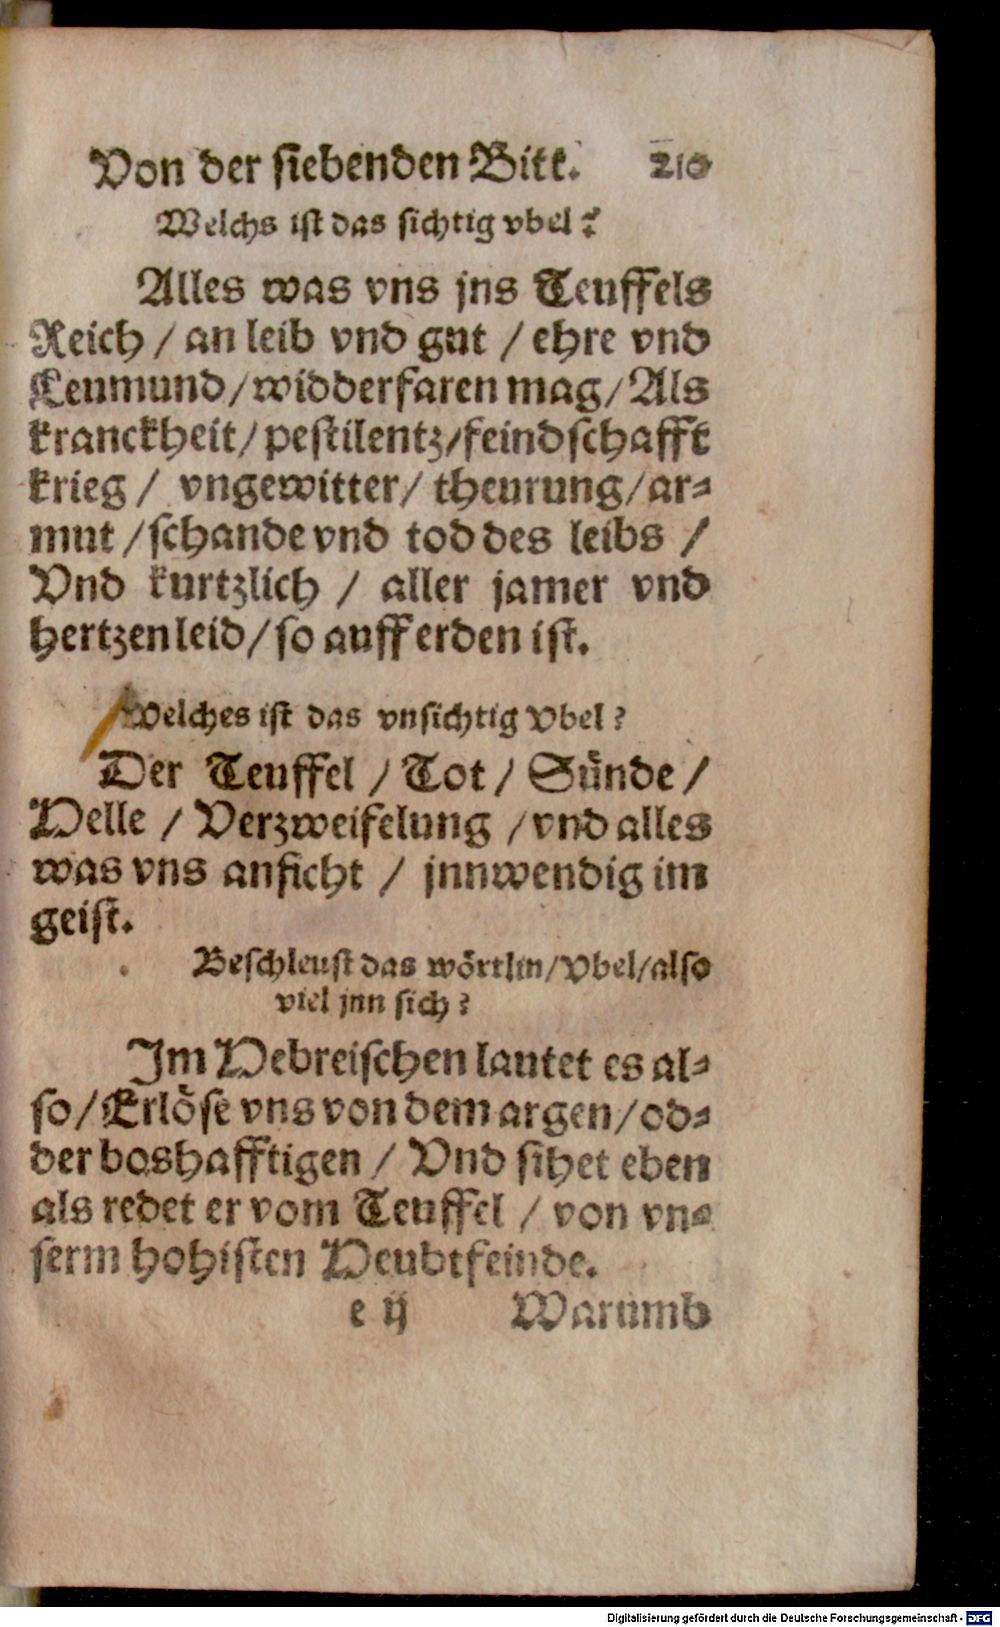 Von der siebenden Bitt. 210
Welchs ist das sichtig vbel?
Alles was vns jns Teuffels
Reich / an leib vnd gut / ehre vnd
Leumund / widderfaren mag / Als
kranckheit / pestilentz / feindschafft
krieg / vngewitter / theurung / ar⸗
mut / schande vnd tod des leibs /
Vnd kurtzlich / aller jamer vnd
hertzenleid / so auff erden ist.
Welches ist das vnsichtig Vbel?
Der Teuffel / Tot / Sünde /
Helle / Verzweifelung / vnd alles
was vns anficht / jnnwendig im
geist.
Beschleust das wörtlin / Vbel / also
viel jnn sich?
Im Hebreischen lautet es al⸗
so / Erlöse vns von dem argen / od⸗
der boshafftigen / Vnd sihet eben
als redet er vom Teuffel / von vn⸗
serm hohisten Heubtfeinde.
e ij Warumb
Digitalisierung gefördert durch die Deutsche Forschungsgemeinschaft - DFG